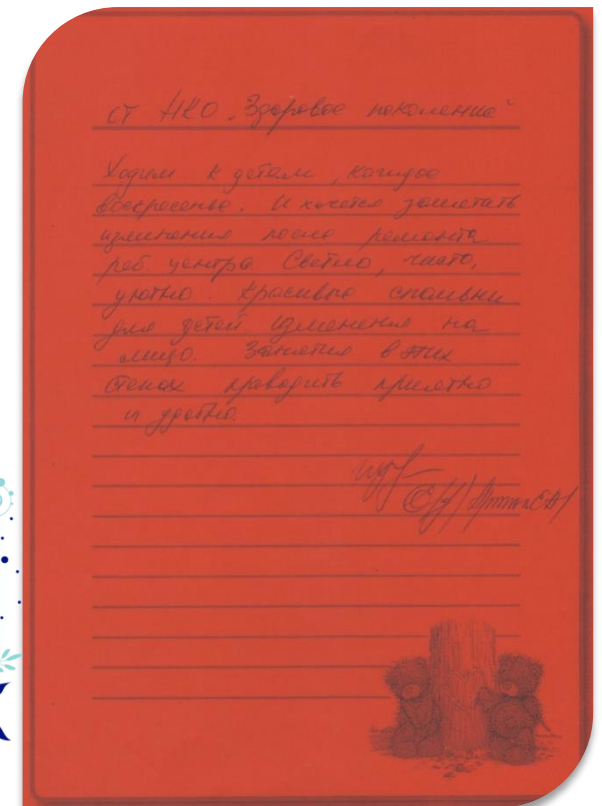 от НКО "Здоровое поколение"
Ходим к детям, каждое
воскресенье. И хочется заметать
изменения после ремонта
реб центра Светло, чисто,
уютно. Красивые спальни
для детей изменения на
лицо. Занятия в этих
стенах проводить приятно
и удобно.